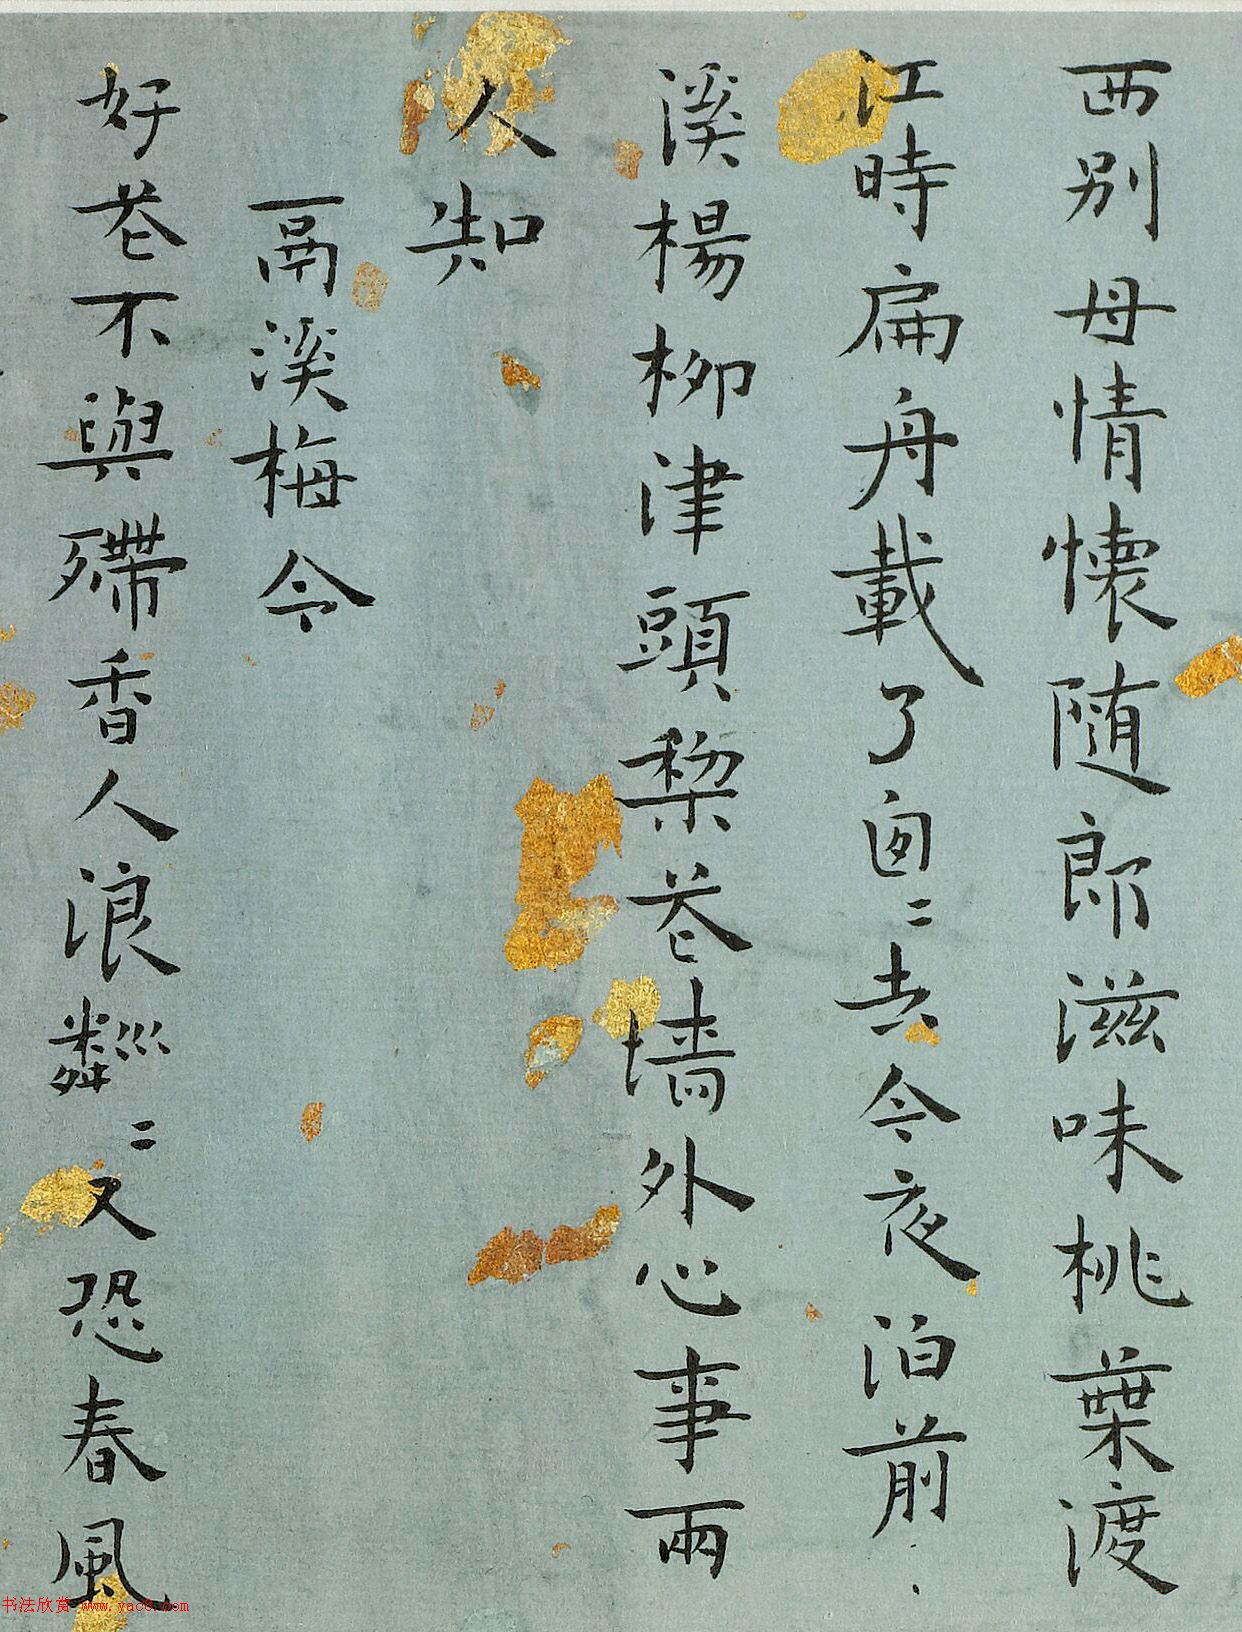 西别母情懷随郎滋味桃葉渡
江時扁舟載了匆〻去今夜泊前
溪楊柳津頭梨花墻外心事兩
人知
鬲溪梅令
好花不與殢香人浪粼〻又恐春風
书法欣赏 www.yac8.com